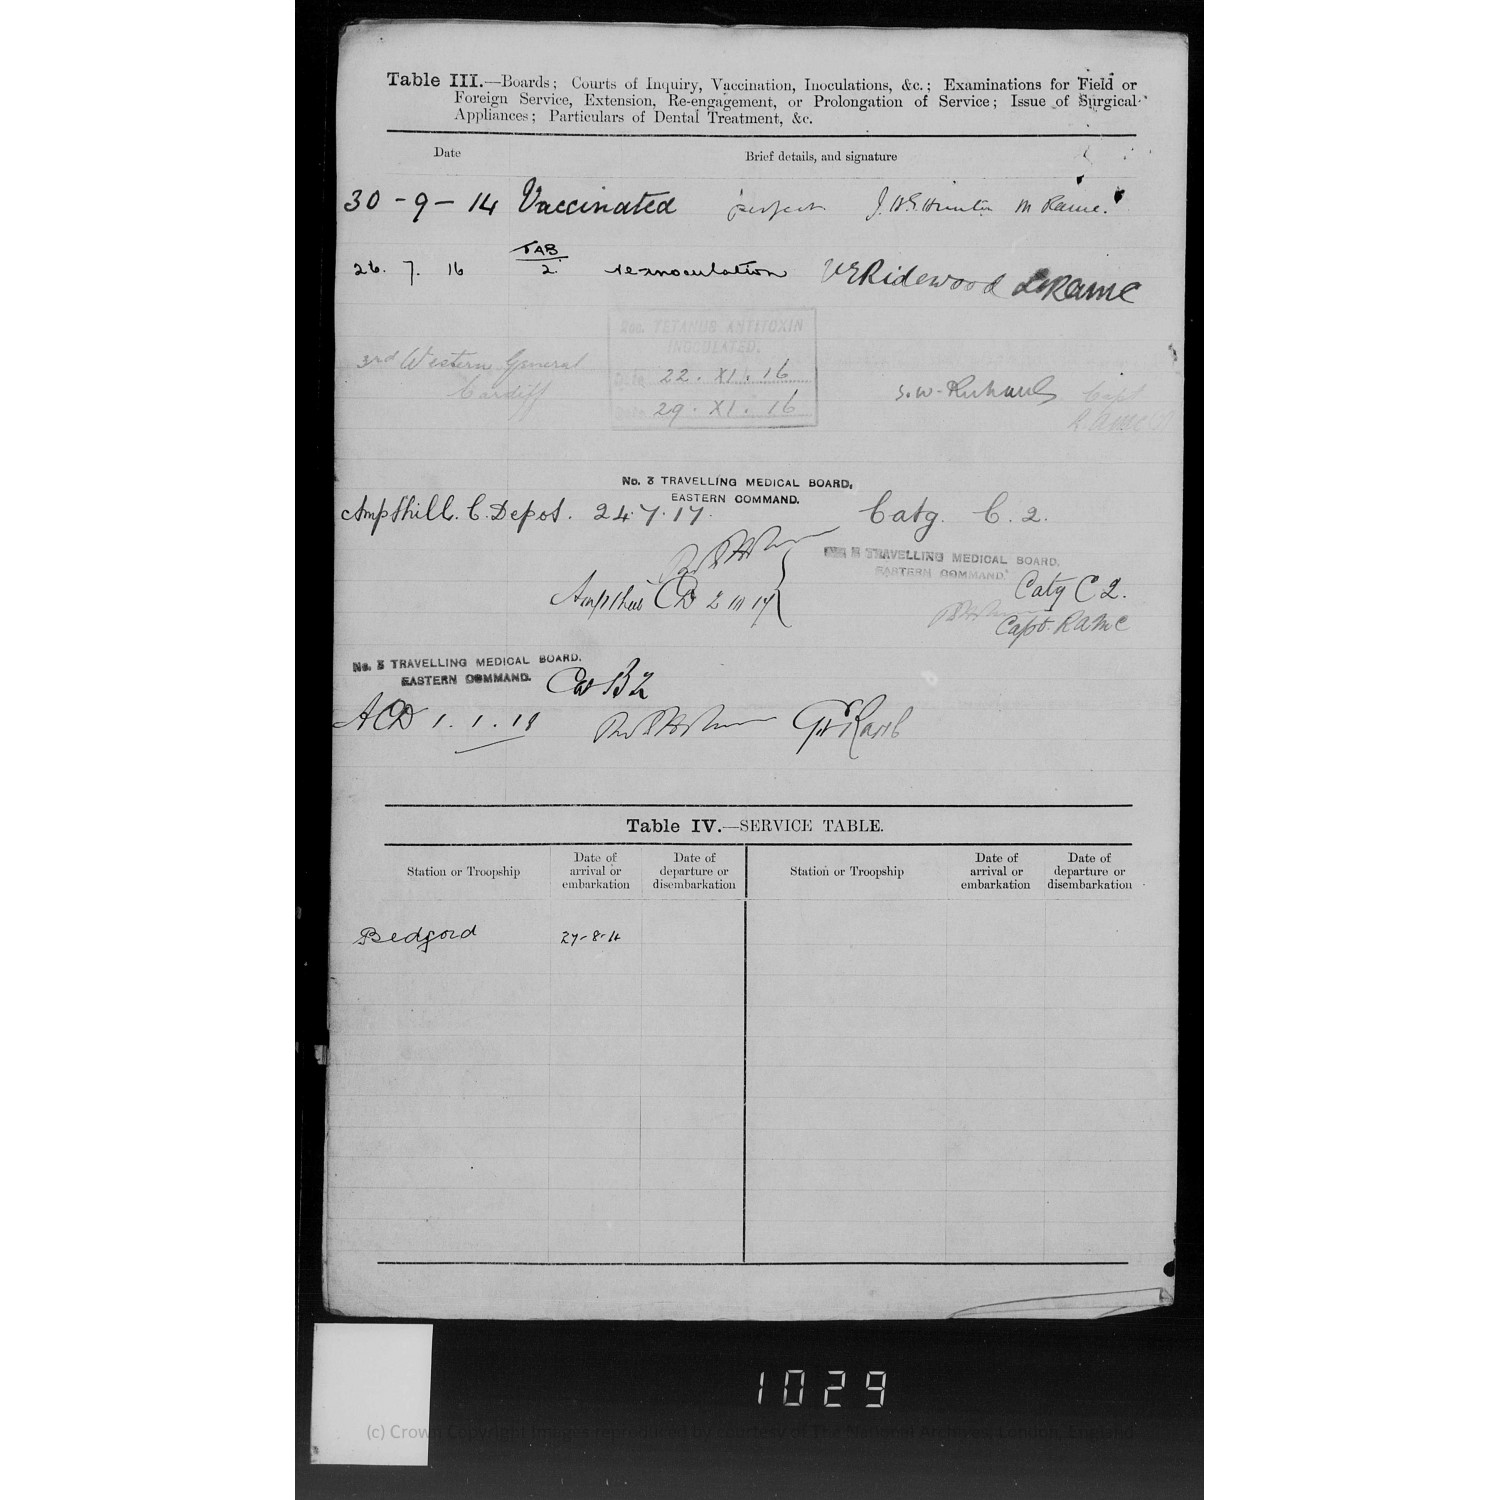 Table III.—Boards; Courts of Inquiry, Vaccination, Inoculations, &c.; Examinations for Field or
Foreign Service, Extension, Re-engagement, or Prolongation of Service; Issue of Surgical
Appliances; Particulars of Dental Treatment, &c.
Date Brief details, and signature
30-9-14 Vaccinated perfect J.H.S. Hunter
26. 7. 16 TAB 2. re-inoculation V E Ridewood Lt RAMC
TETANUS ANTITOXIN
INOCULATED.
3rd Western General 22. XI. 16
Cardiff 29. XI. 16 S.W. Richards Capt
RAMC
No. 3 TRAVELLING MEDICAL BOARD,
EASTERN COMMAND.
Ampthill. C. Depot. 24.7.17. Catg. C. 2.
TRAVELLING MEDICAL BOARD,
EASTERN COMMAND.
Ampthill CD 2 10 17 Catg C 2.
Capt. RAMC
No. 3 TRAVELLING MEDICAL BOARD.
EASTERN COMMAND. B2
ACD 1. 1. 18
Table IV.—SERVICE TABLE.
Station or Troopship Date of arrival or embarkation Date of departure or disembarkation Station or Troopship Date of arrival or embarkation Date of departure or disembarkation
Bedford 27-8-14
1029
(c) Crown Copyright Images reproduced by courtesy of The National Archives, London, England